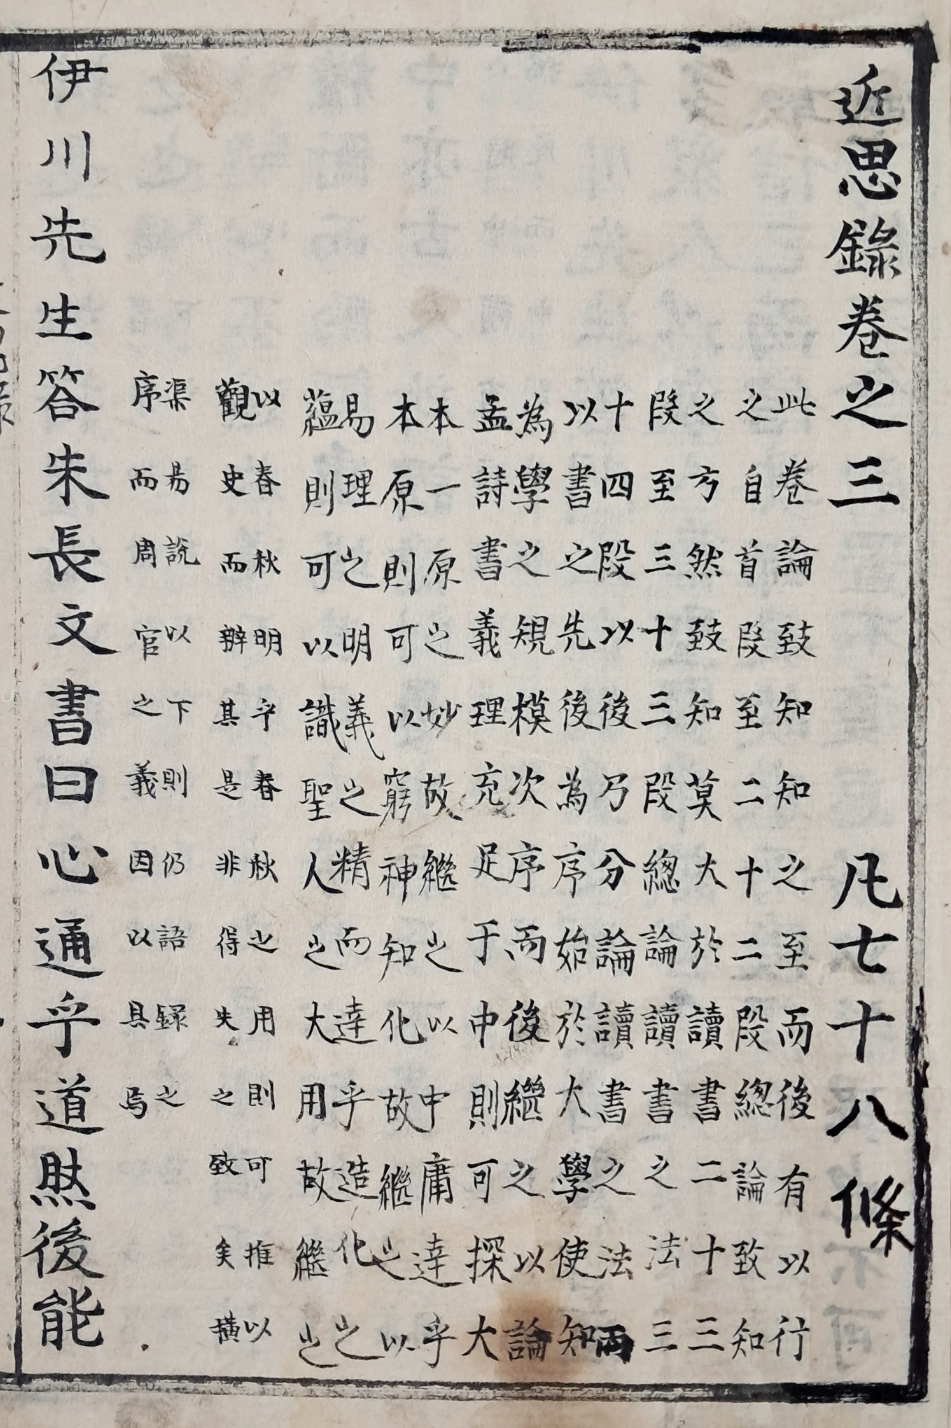 近思錄卷之三 凡七十八條
此卷論致知知之至而後有以行
之自首段至二十二段總論致知
之方然致知莫大於讀書二十三
段至三十三段總論讀書之法三
十四段以後乃分論讀書之法而
以書之先後為序始於大學使知
為學之規模次序而後繼之以論
孟詩書義理充足于中則可探大
本一原之妙故繼之以中庸達乎
本原則可以窮神知化故繼之以
易理之明義之精而達乎造化之
蘊則可以識聖人之大用故繼之
以春秋明乎春秋之用則可推以
觀史而辨其是非得失之致矣橫
渠易說以下則仍語錄之
序而周官之義因以具焉
伊川先生答朱長文書曰心通乎道然後能